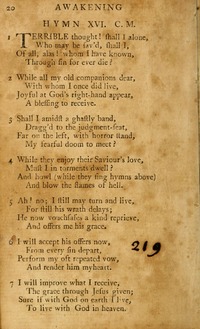 20 AWAKENING
HYMN XVI. C. M.
1 TERRIBLE thought! ſhall I alone,
Who may be ſav'd, ſhall I,
Of all, alas! whom I have known,
Through ſin for ever die?
2 While all my old companions dear,
With whom I once did live,
Joyful at God's right-hand appear,
A bleſſing to receive.
3 Shall I amidſt a ghaſtly band,
Dragg'd to the judgment-ſeat,
Far on the left, with horror ſtand,
My fearful doom to meet?
4 While they enjoy their Saviour's love,
Muſt I in torments dwell?
And howl (while they ſing hymns above)
And blow the flames of hell.
5 Ah! no; I ſtill may turn and live,
For ſtill his wrath delays;
He now vouchſafes a kind reprieve,
And offers me his grace.
6 I will accept his offers now,
From every ſin depart,
Perform my oft repeated vow,
And render him my heart.
219
7 I will improve what I receive,
The grace through Jeſus given;
Sure if with God on earth I live,
To live with God in heaven.